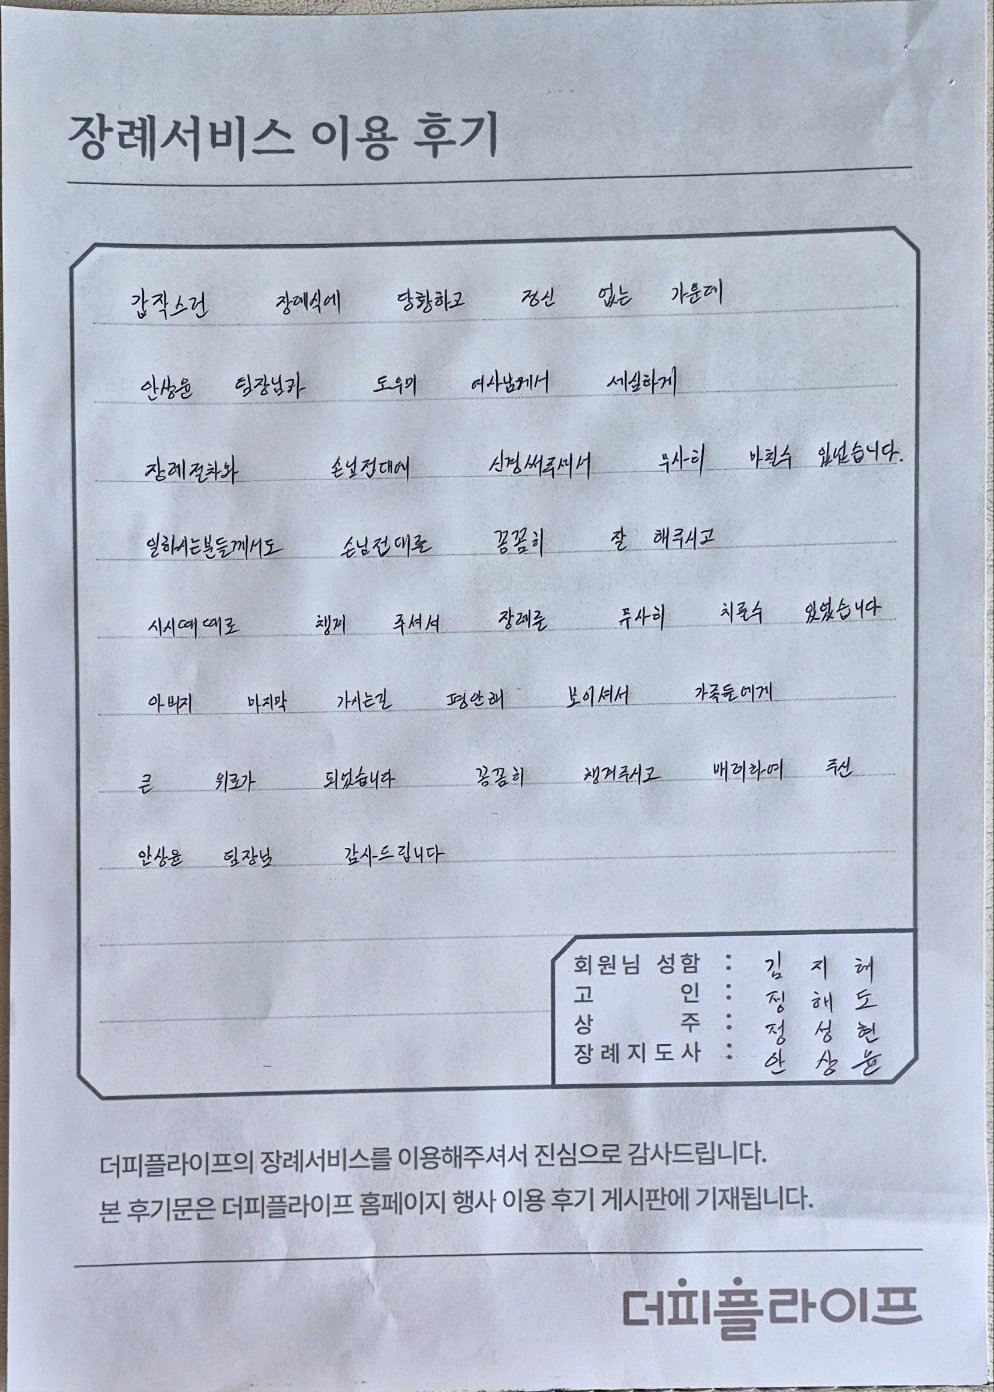 장례서비스 이용 후기
갑작스런 장례식에 당황하고 정신 없는 가운데
안상윤 팀장님과 도우미 여사님께서 세심하게
장례절차와 손님접대에 신경써주셔서 무사히 마칠수 있었습니다.
일하시는분들께서도 손님접대를 꼼꼼히 잘 해주시고
시시때때로 챙겨 주셔서 장례를 무사히 치룰수 있었습니다
아버지 마지막 가시는길 평안해 보이셔서 가족들에게
큰 위로가 되었습니다 꼼꼼히 챙겨주시고 배려하여 주신
안상윤 팀장님 감사드립니다
회원님 성함 : 김지혜
고인 : 정해도
상주 : 정성현
장례지도사 : 안상윤
더피플라이프의 장례서비스를 이용해주셔서 진심으로 감사드립니다.
본 후기문은 더피플라이프 홈페이지 행사 이용 후기 게시판에 기재됩니다.
더피플라이프